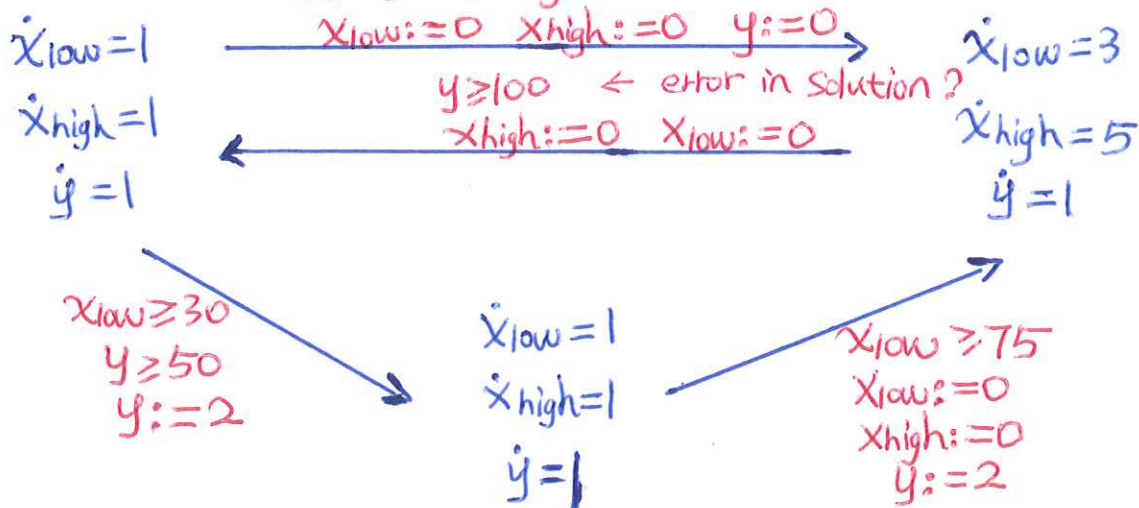 xlow:=0 xhigh:=0 y:=0
ẋlow=1
ẋhigh=1
ẏ=1
y≥100 ← error in solution?
xhigh:=0 xlow:=0
ẋlow=3
ẋhigh=5
ẏ=1
xlow≥30
y≥50
y:=2
ẋlow=1
ẋhigh=1
ẏ=1
xlow≥75
xlow:=0
xhigh:=0
y:=2